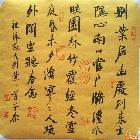 别業居幽處到來生
隱心南山當戶牖灃水
映園林竹覆經冬雪
庭昏未夕陰寥寥人境
外閒坐聽春禽
祖詠蘇氏別業